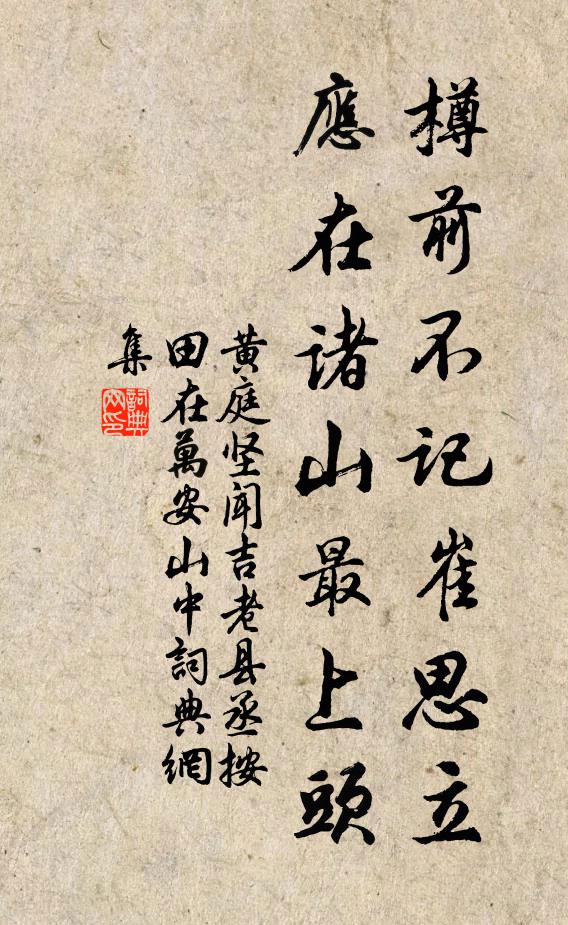 樽前不记崔思立
應在诸山最上頭
黄庭坚闻吉老县丞按
田在萬安山中詞典網
集
詞典
网印